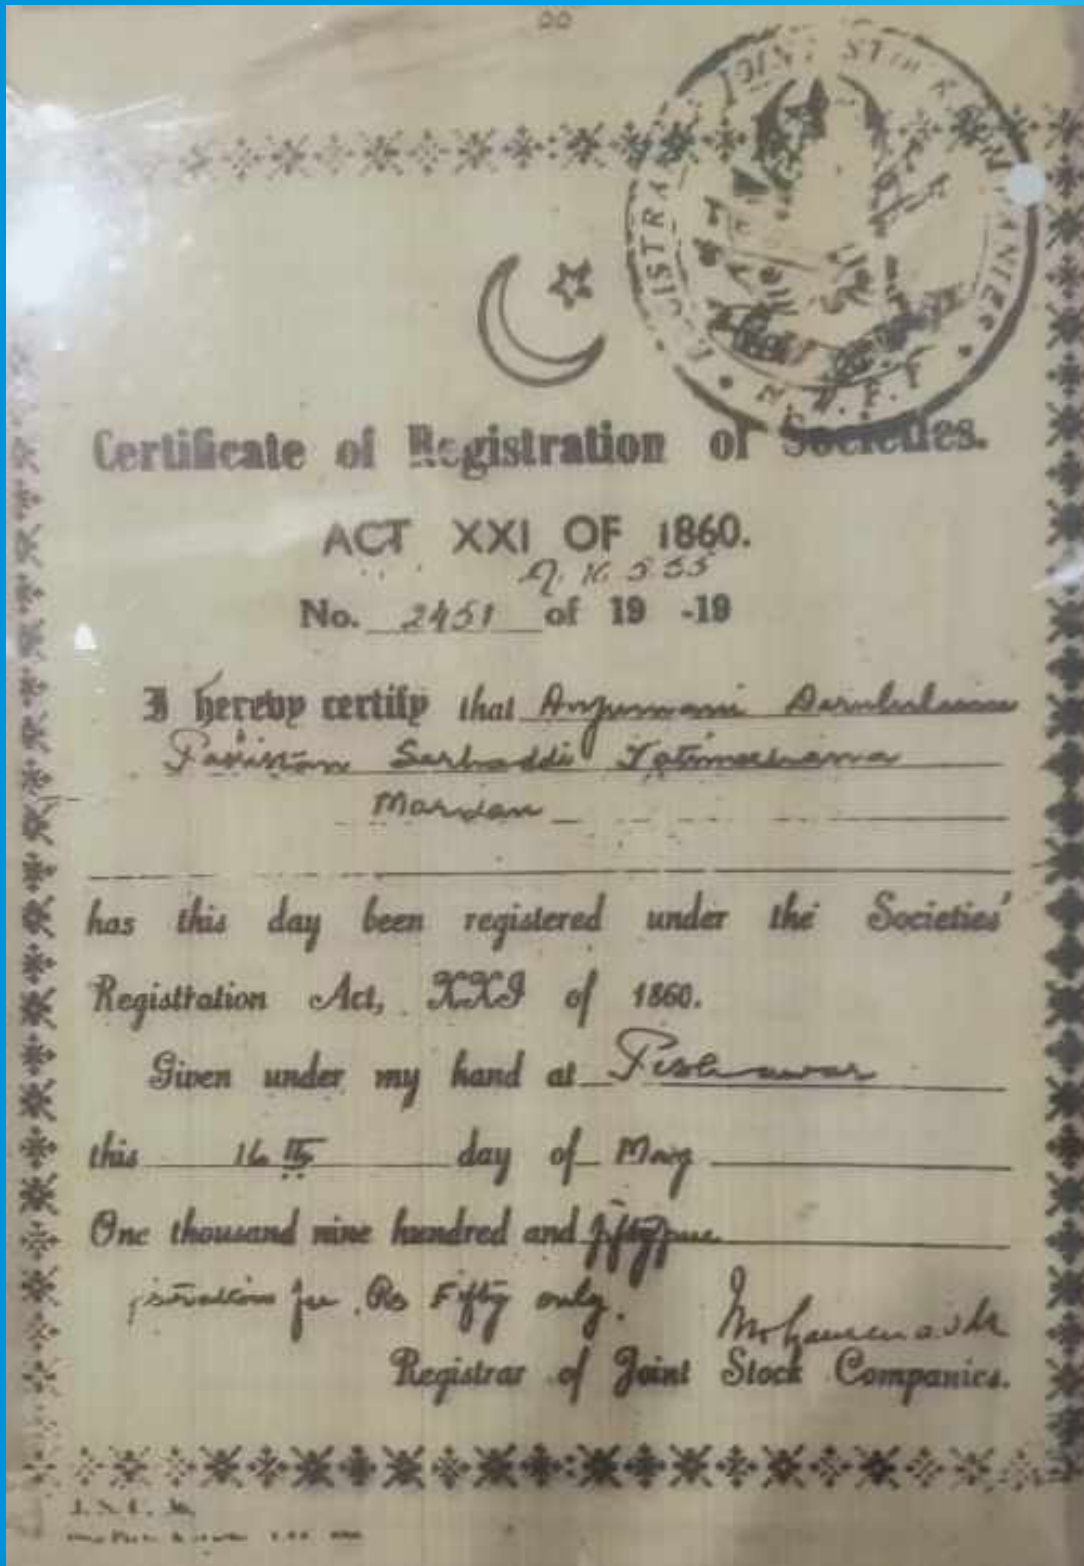 REGISTRAR JOINT STOCK COMPANIES
N.W.F.P
Certificate of Registration of Societies.
ACT XXI OF 1860.
16.5.55
No. 2451 of 19 -19
I hereby certify that Anjumani
Pakistan Sarhaddi
Mardan
has this day been registered under the Societies'
Registration Act, XXI of 1860.
Given under my hand at Peshawar
this 16th day of May
One thousand nine hundred and fifty five
fee Rs Fifty only.
Registrar of Joint Stock Companies.